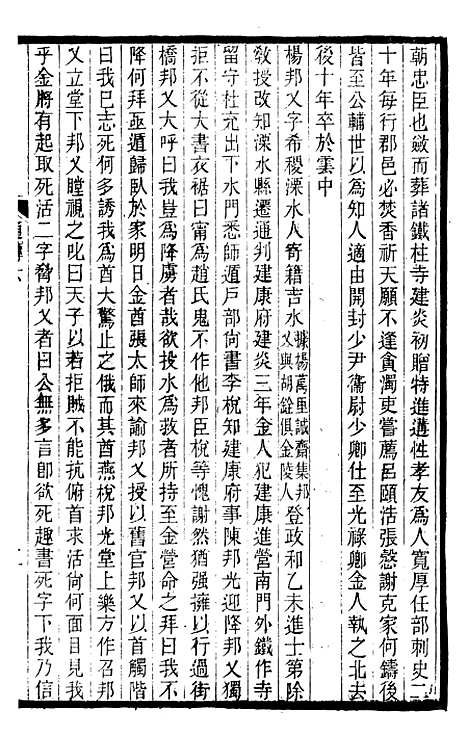 朝忠臣也斂而葬諸鐵柱寺建炎初贈特進遘性孝友爲人寬厚任部刺史二
十年每行郡邑必焚香祈天願不逢貪濁吏嘗薦呂頤浩張慤謝克家何鑄後
皆至公輔世以爲知人適由開封少尹衞尉少卿仕至光祿卿金人執之北去
後十年卒於雲中
楊邦乂字希稷溧水人寄籍吉水據楊萬里誠齋集邦乂與胡銓俱金陵人登政和乙未進士第除
敎授改知溧水縣遷通判建康府建炎三年金人犯建康進營南門外鐵作寺
留守杜充出下水門悉師遁戶部尙書李梲知建康府事陳邦光迎降邦乂獨
拒不從大書衣裾曰甯爲趙氏鬼不作他邦臣梲等愧謝然猶强擁以行過街
橋邦乂大呼曰我豈爲降虜者哉欲投水爲救者所持至金營命之拜曰我不
降何拜亟遁歸臥於家明日金酋張太師來諭邦乂授以舊官邦乂以首觸階
曰我已志死何多誘我爲酋大驚止之俄而其酋燕梲邦光堂上樂方作召邦
又立堂下邦乂瞠視之叱曰天子以若拒賊不能抗俯首求活尙何面目見我
乎金將有起取死活二字脅邦乂者曰公無多言即欲死趣書死字下我乃信